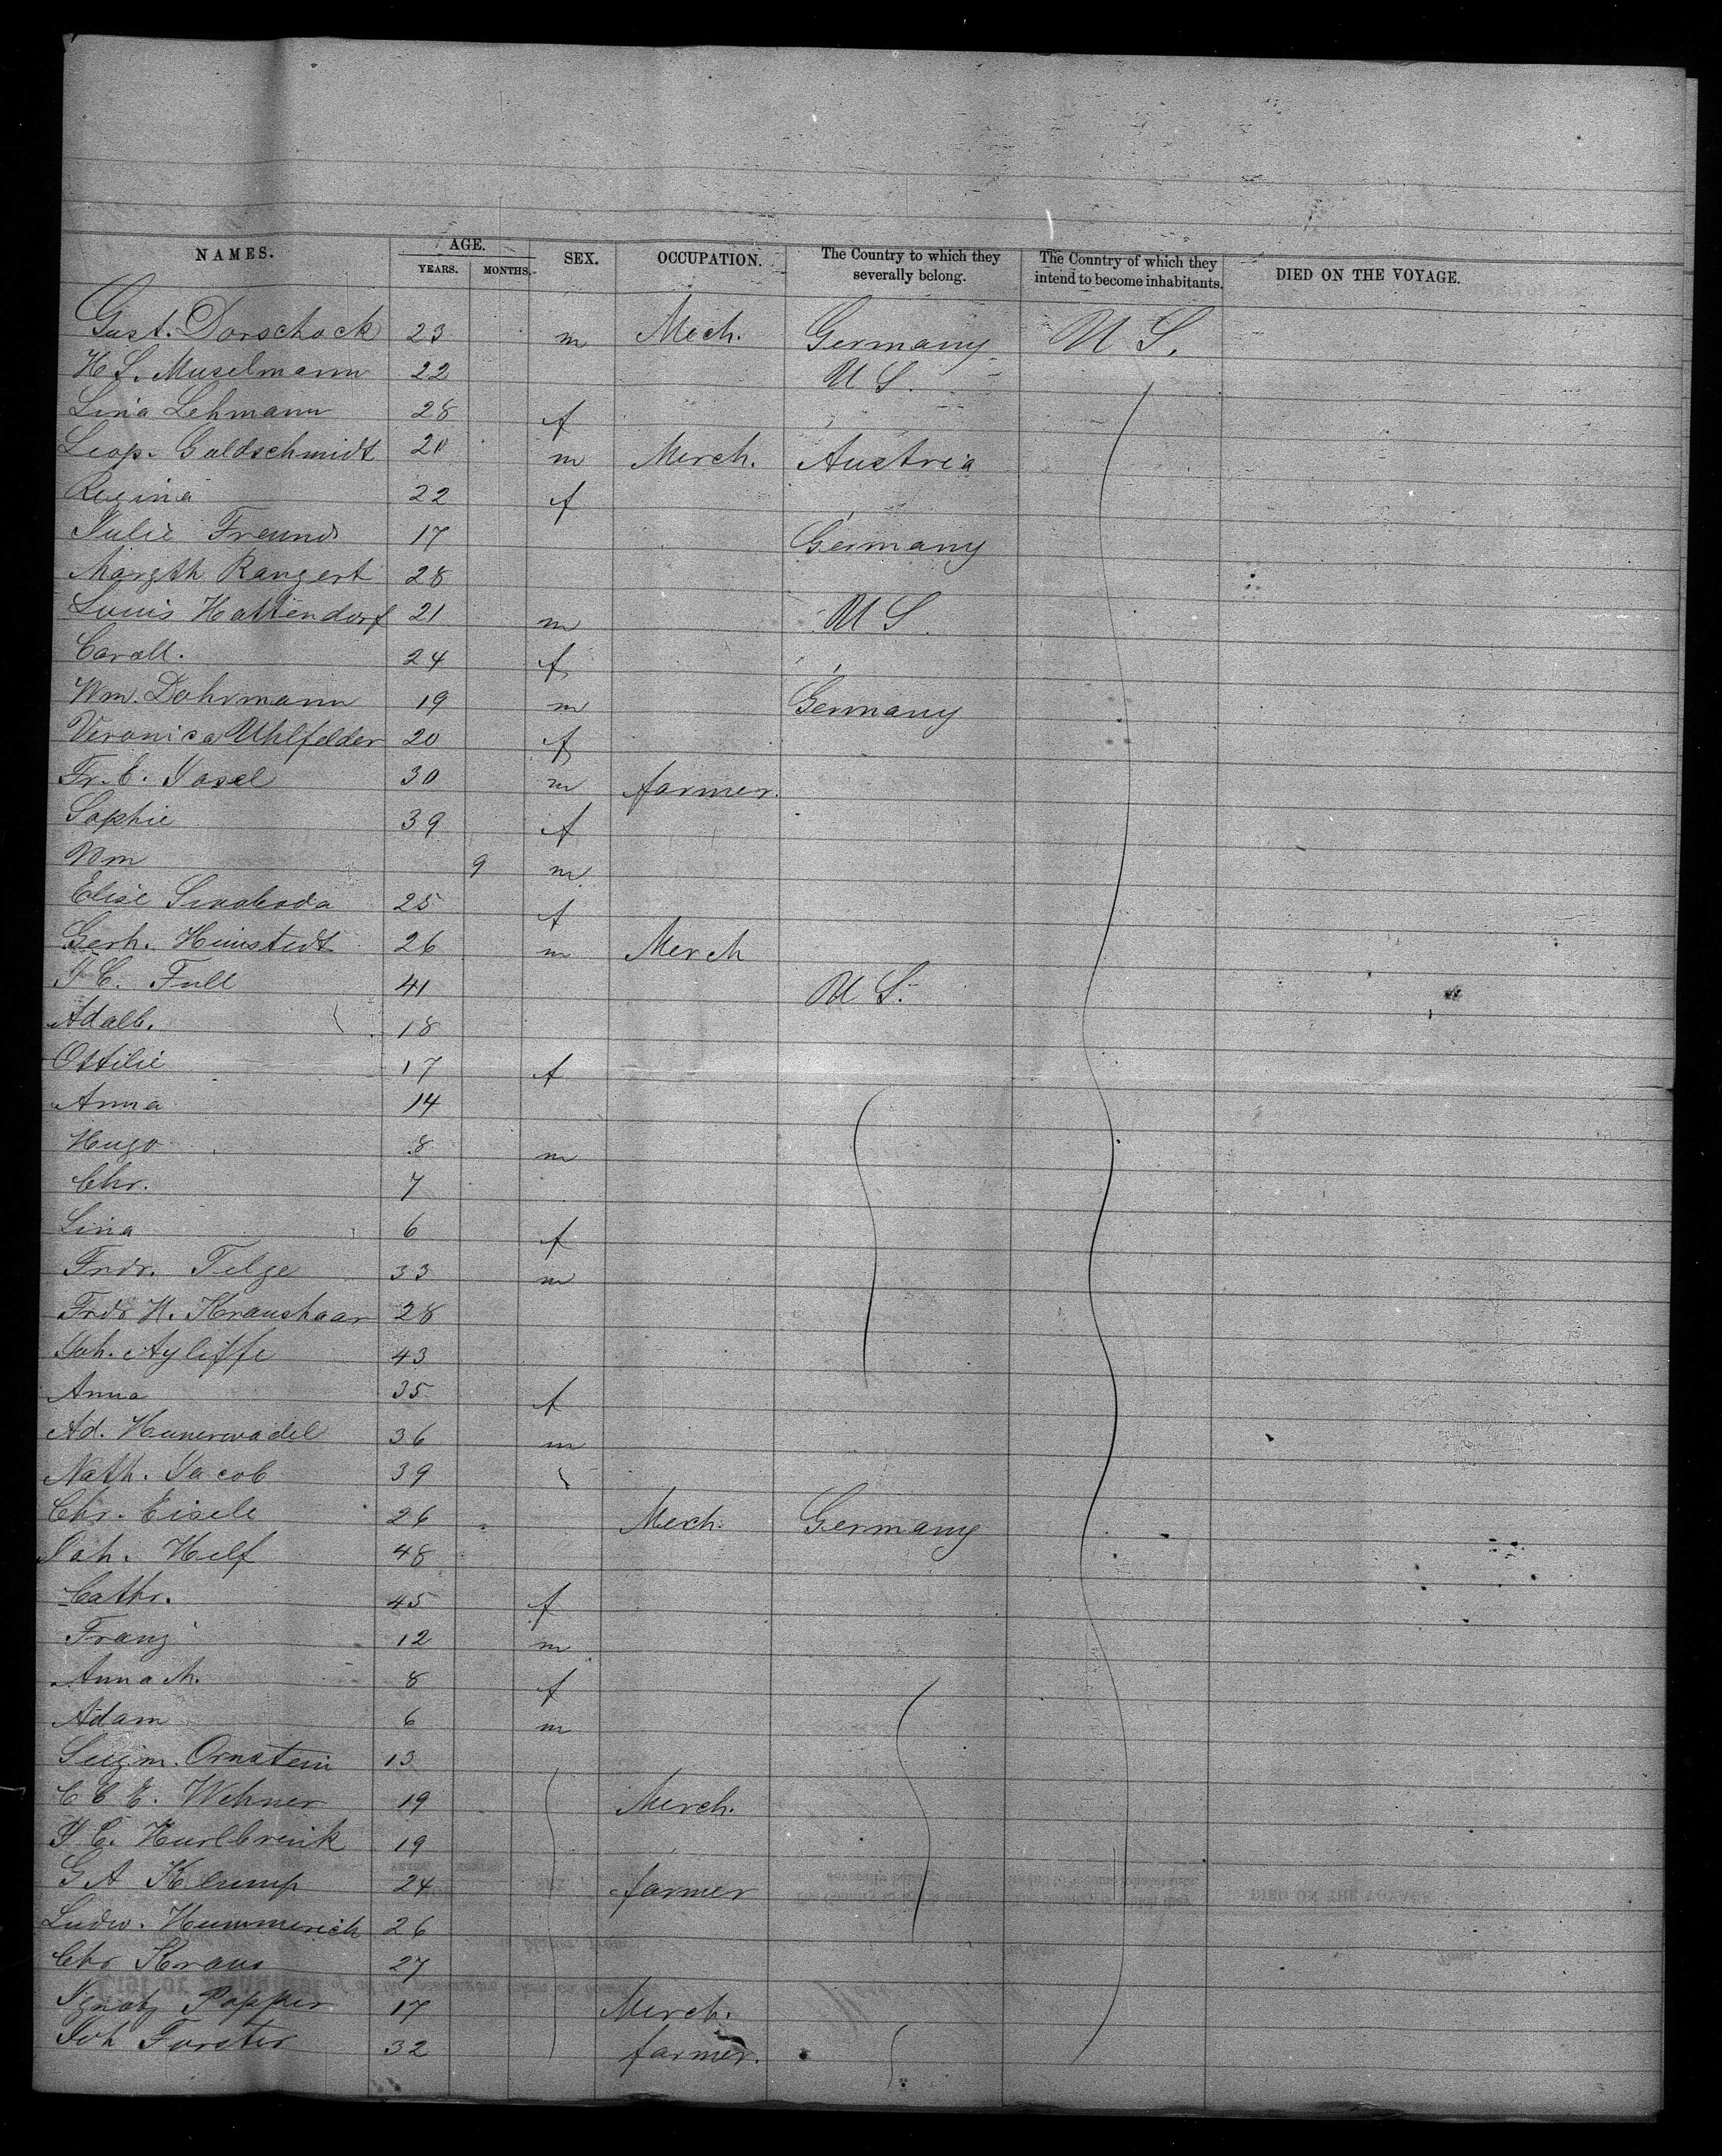 NAMES. AGE. SEX. OCCUPATION. The Country to which they severally belong. The Country of which they intend to become inhabitants. DIED ON THE VOYAGE.
YEARS. MONTHS.
Gust. Dorschock 23 m Mech. Germany U S.
H S. Muselmann 22 U S.
Lina Lehmann 28 f
Leop. Goldschmidt 20 m Merch. Austria
Regina 22 f
Julie Freund 17 Germany
Margth Rangert 28
Louis Hattendorf 21 m U S
Caroll. 24 f
Wm. Dohrmann 19 m Germany
Veronica Uhlfelder 20 f
Fr. E. Josel 30 m farmer.
Sophie 39 f
Wm 9 m
Elise Swoboda 25 f
Gerh. Heinstedt 26 m Merch
J C. Full 41 U S.
Adalb. 18
Ottilie 17 f
Anna 14
Hugo 8 m
Chr. 7
Lina 6 f
Frdr. Telge 33 m
Frdr H. Kraushaar 28
Joh. Ayliffe 43
Anna 35 f
Ad. Hunerwadel 36 m
Nath. Jacob 39
Chr. Eisele 26 Mech. Germany
Joh. Helf 48
Cathr. 45 f
Franz 12 m
Anna M. 8 f
Adam 6 m
Seigm. Ornstein 13
C C E. Wehner 19 Merch.
J C. 19
G A Klump 24 farmer
Ludw. Hummerich 26
Chr Kraus 27
Ignatz Popper 17 Merch.
Joh Forster 32 farmer.